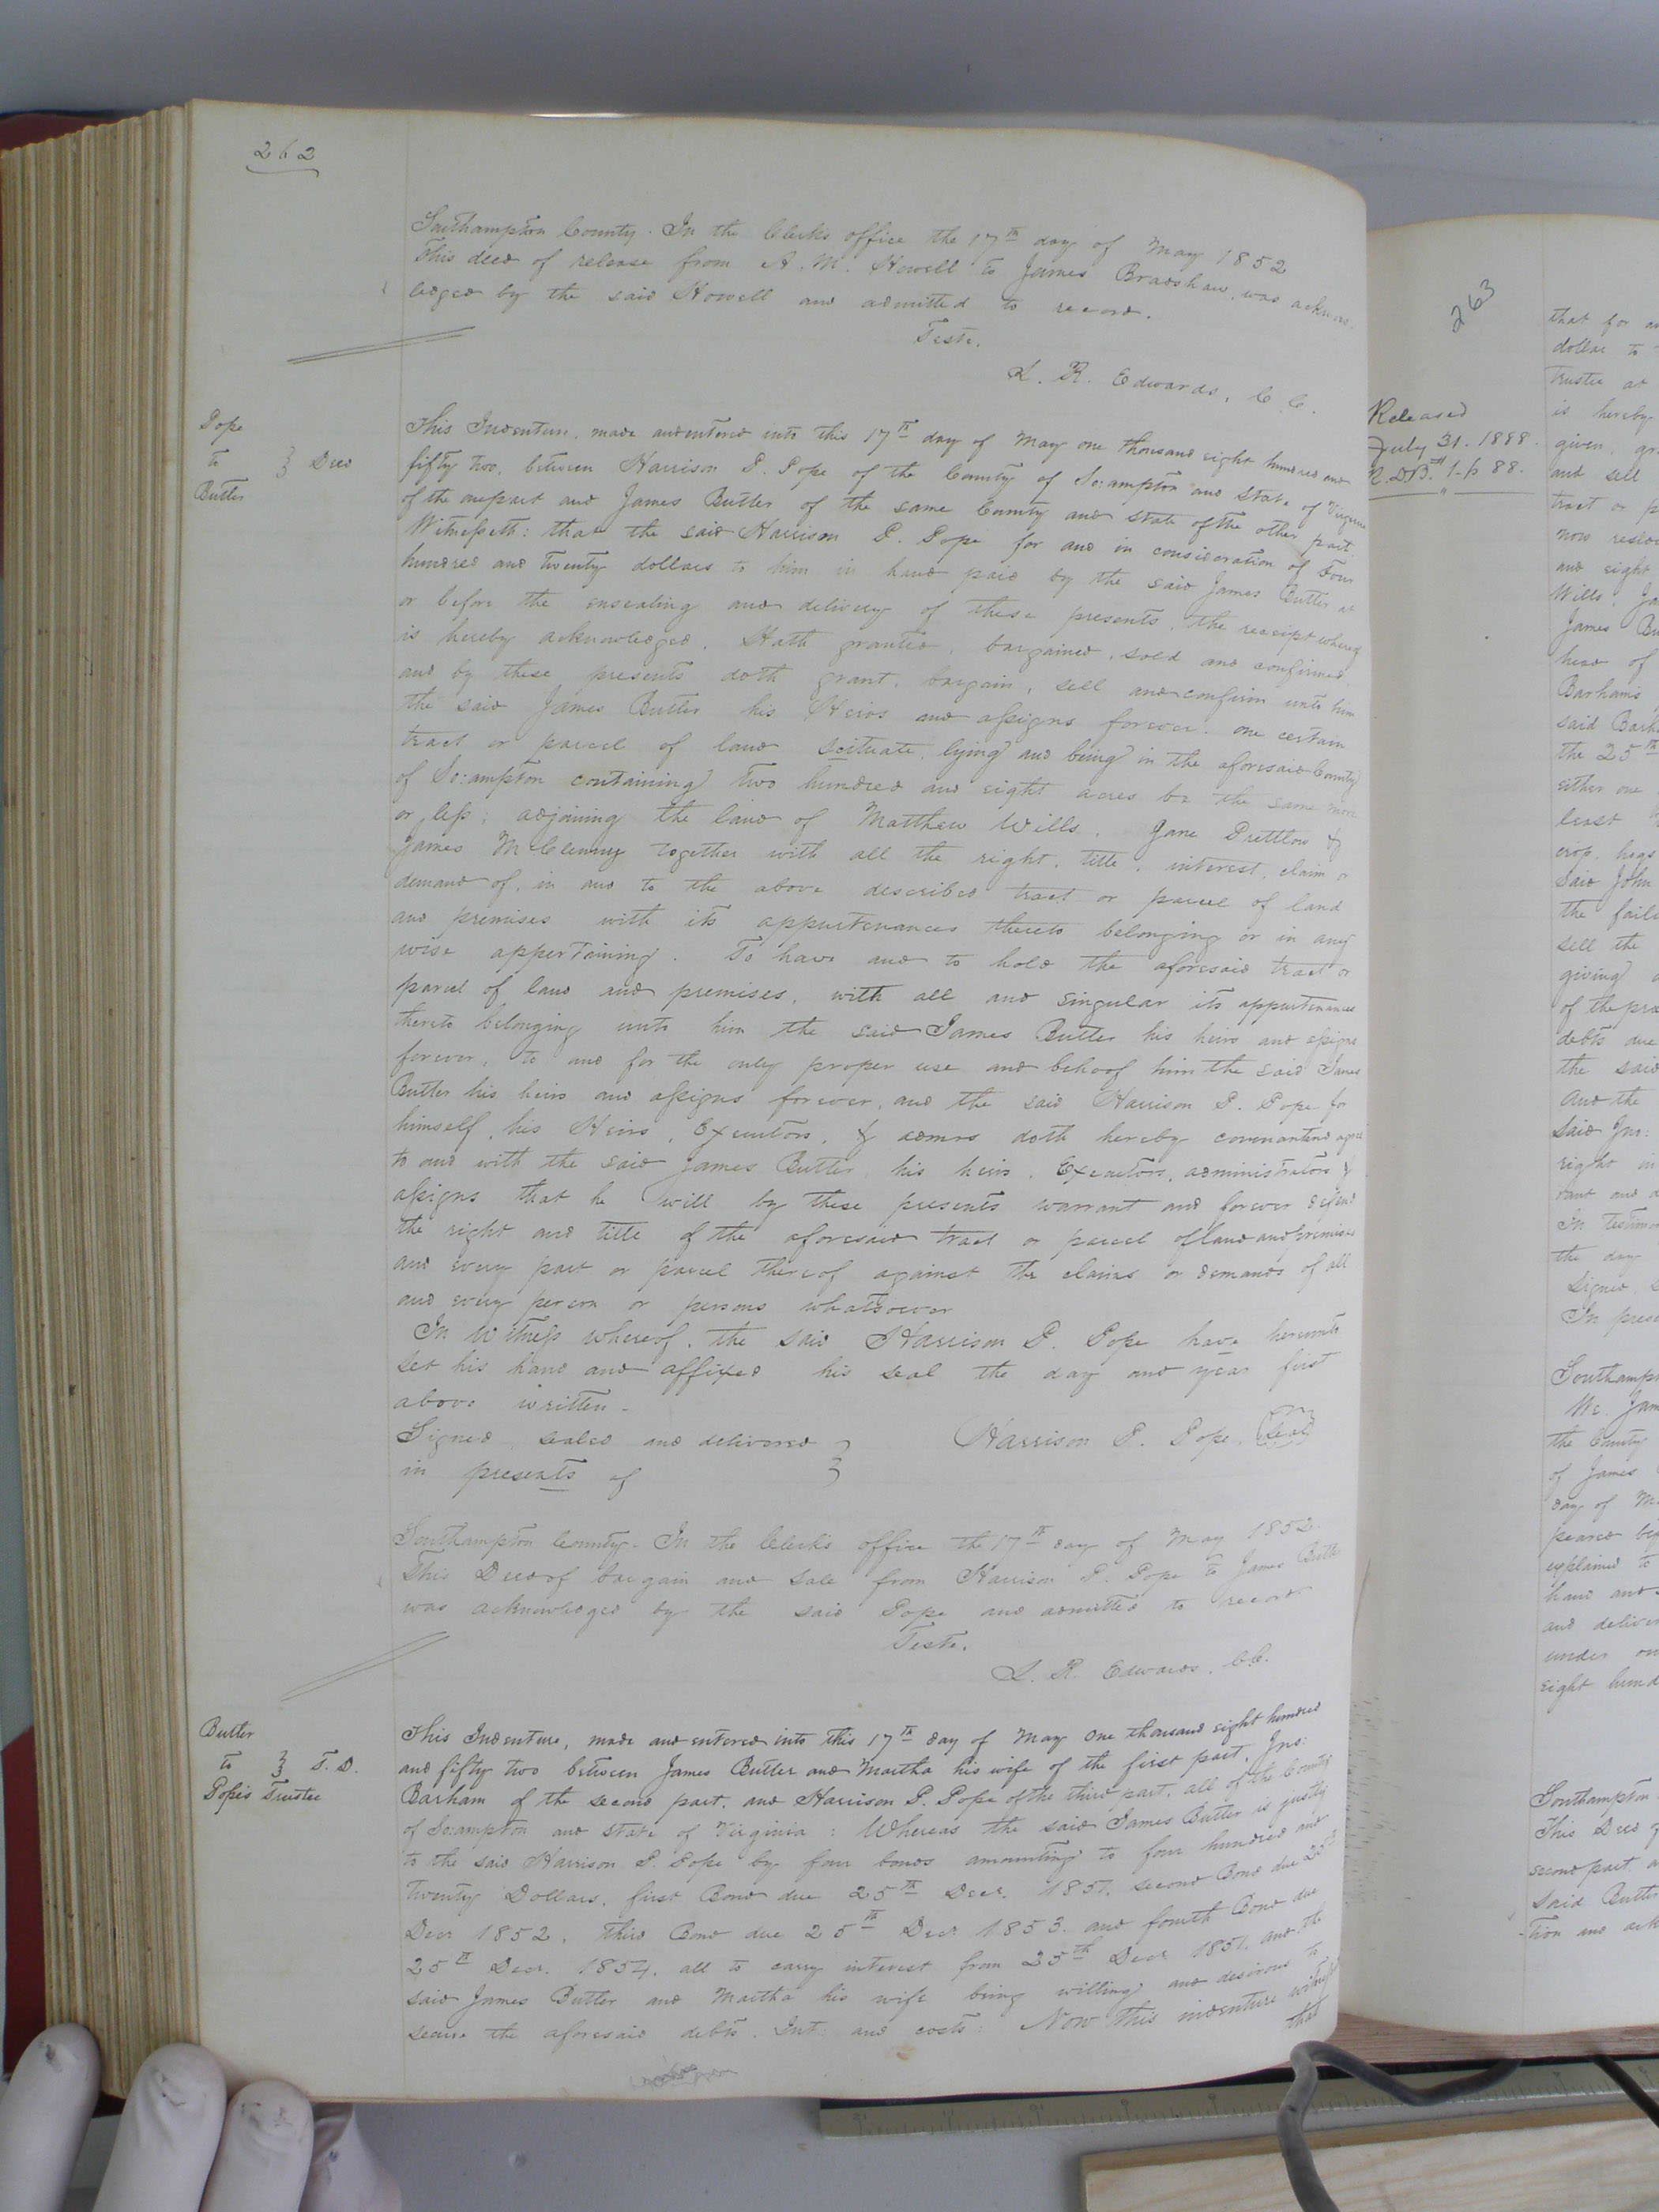 262
Southampton County. In the Clerk's office the 17th day of May 1852
This deed of release from A. M. Howell to James Bradshaw, was acknow
ledged by the said Howell and admitted to record.
Teste.
L. R. Edwards, C. C.
Pope
to } Deed
Butler
This Indenture, made and entered into this 17th day of May one thousand eight hundred and
fifty two, between Harrison P. Pope of the County of So:ampton and State of Virginia
of the one part and James Butler of the same County and State of the other part.
Witnesseth: that the said Harrison P. Pope for and in consideration of Four
hundred and twenty dollars to him in hand paid by the said James Butler at
or before the ensealing and delivery of these presents, the receipt whereof
is hereby acknowledged. Hath granted, bargained, sold and confirmed
and by these presents doth grant, bargain, sell and confirm unto him
the said James Butler his Heirs and assigns forever. one certain
tract or parcel of land scituate, lying and being in the aforesaid County
of So:ampton containing two hundred and eight acres be the same more
or less; adjoining the land of Matthew Wills, Jane Prettlow &
James McClenny together with all the right, title, interest, claim or
demand of, in and to the above described tract or parcel of land
and premises with its appurtenances thereto belonging or in any
wise appertaining. To have and to hold the aforesaid tract or
parcel of land and premises, with all and singular its appurtenances
thereto belonging unto him the said James Butler his heirs and assigns
forever, to and for the only proper use and behoof him the said James
Butler his heirs and assigns forever, and the said Harrison P. Pope for
himself, his Heirs, Executors, & admrs doth hereby covenant and agree
to and with the said James Butler his heirs, Executors, administrators &
assigns that he will by these presents warrant and forever defend
the right and title of the aforesaid tract or parcel of land and premises
and every part or parcel thereof against the claims or demands of all
and every person or persons whatsoever
In Witness whereof, the said Harrison P. Pope have hereunto
set his hand and affixed his seal the day and year first
above written.
Signed sealed and delivered } Harrison P. Pope. Seal
in presents of
Southampton County. In the Clerk's office the 17th day of May 1852.
This Deed of bargain and sale from Harrison P. Pope to James Butler
was acknowledged by the said Pope and admitted to record
Teste.
L. R. Edwards, CC.
Butler
to } T. D.
Pope's Trustee
This Indenture, made and entered into this 17th day of May one thousand eight hundred
and fifty two between James Butler and Martha his wife of the first part, Jno:
Barham of the second part, and Harrison P. Pope of the third part, all of the County
of So:ampton and State of Virginia: Whereas the said James Butler is justly
to the said Harrison P. Pope by four bonds amounting to four hundred and
twenty Dollars, first Bond due 25th Decr. 1851, second Bond due 25th
Decr 1852, third Bond due 25th Decr 1853. and fourth Bond due
25th Decr. 1854. all to carry interest from 25th Decr 1851. and the
said James Butler and Martha his wife being willing and desirous to
secure the aforesaid debts, Int: and costs: Now this indenture witnesseth
that
263
Released
July 31. 1888.
R.D.B. 1 p 88.
that for an
dollar to
trustee at
is hereby
given, gr
and sell
tract or p
now resid
and eight
Wills, Ja
James Bu
head of
Barham's
said Barh
the 25th
either one
least
crop, hogs
Said John
the fail
sell the
giving
of the pro
debts due
the said
And the
Said Jno:
right in
rant and d
In Testimo
the day
Signed, S
In prese
Southampt
We, Jam
the County
of James
day of M
peared be
explained to
hand and
and deliver
under ou
eight hund
Southampton
This Deed
second part, a
said Butler
tion and ack